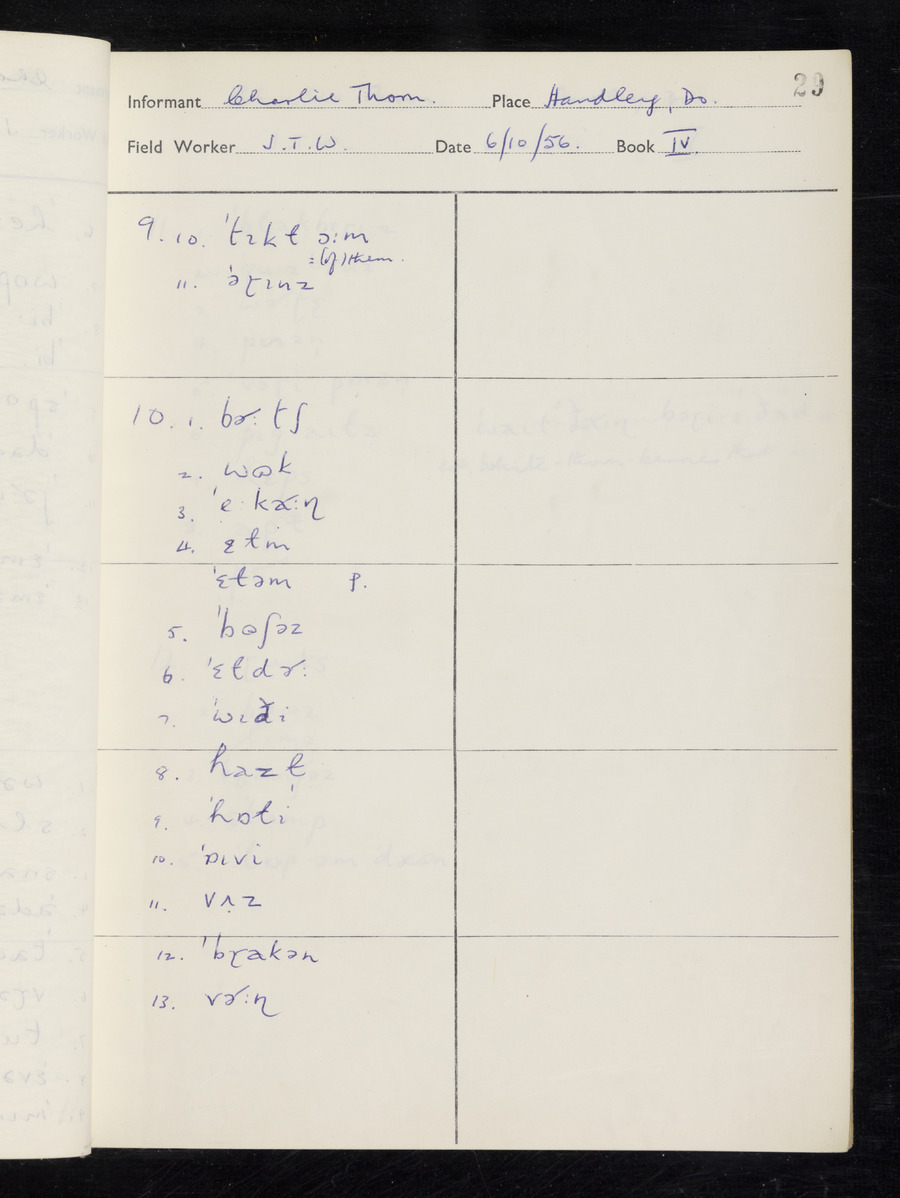 29
Informant Charlie Thorn. Place Handley, Do.
Field Worker J.T.W. Date 6/10/56. Book IV
9. 10. ˈtɪkt ə:m
= (of) them.
11. ˈəɽɪnz
10. 1. bɚ:tʃ
2. wɒk
3. ˈe·kɚ:ɳ
4. ɛtm
ˈɛtəm P.
5. ˈbɒʃəz
6. ˈɛtdɚ:
7. ˈwɪði
8. hazt
9. ˈhɒti
10. ˈɒɪvi
11. vʌ̣z
12. ˈbɽakən
13. vɚ:ɳ